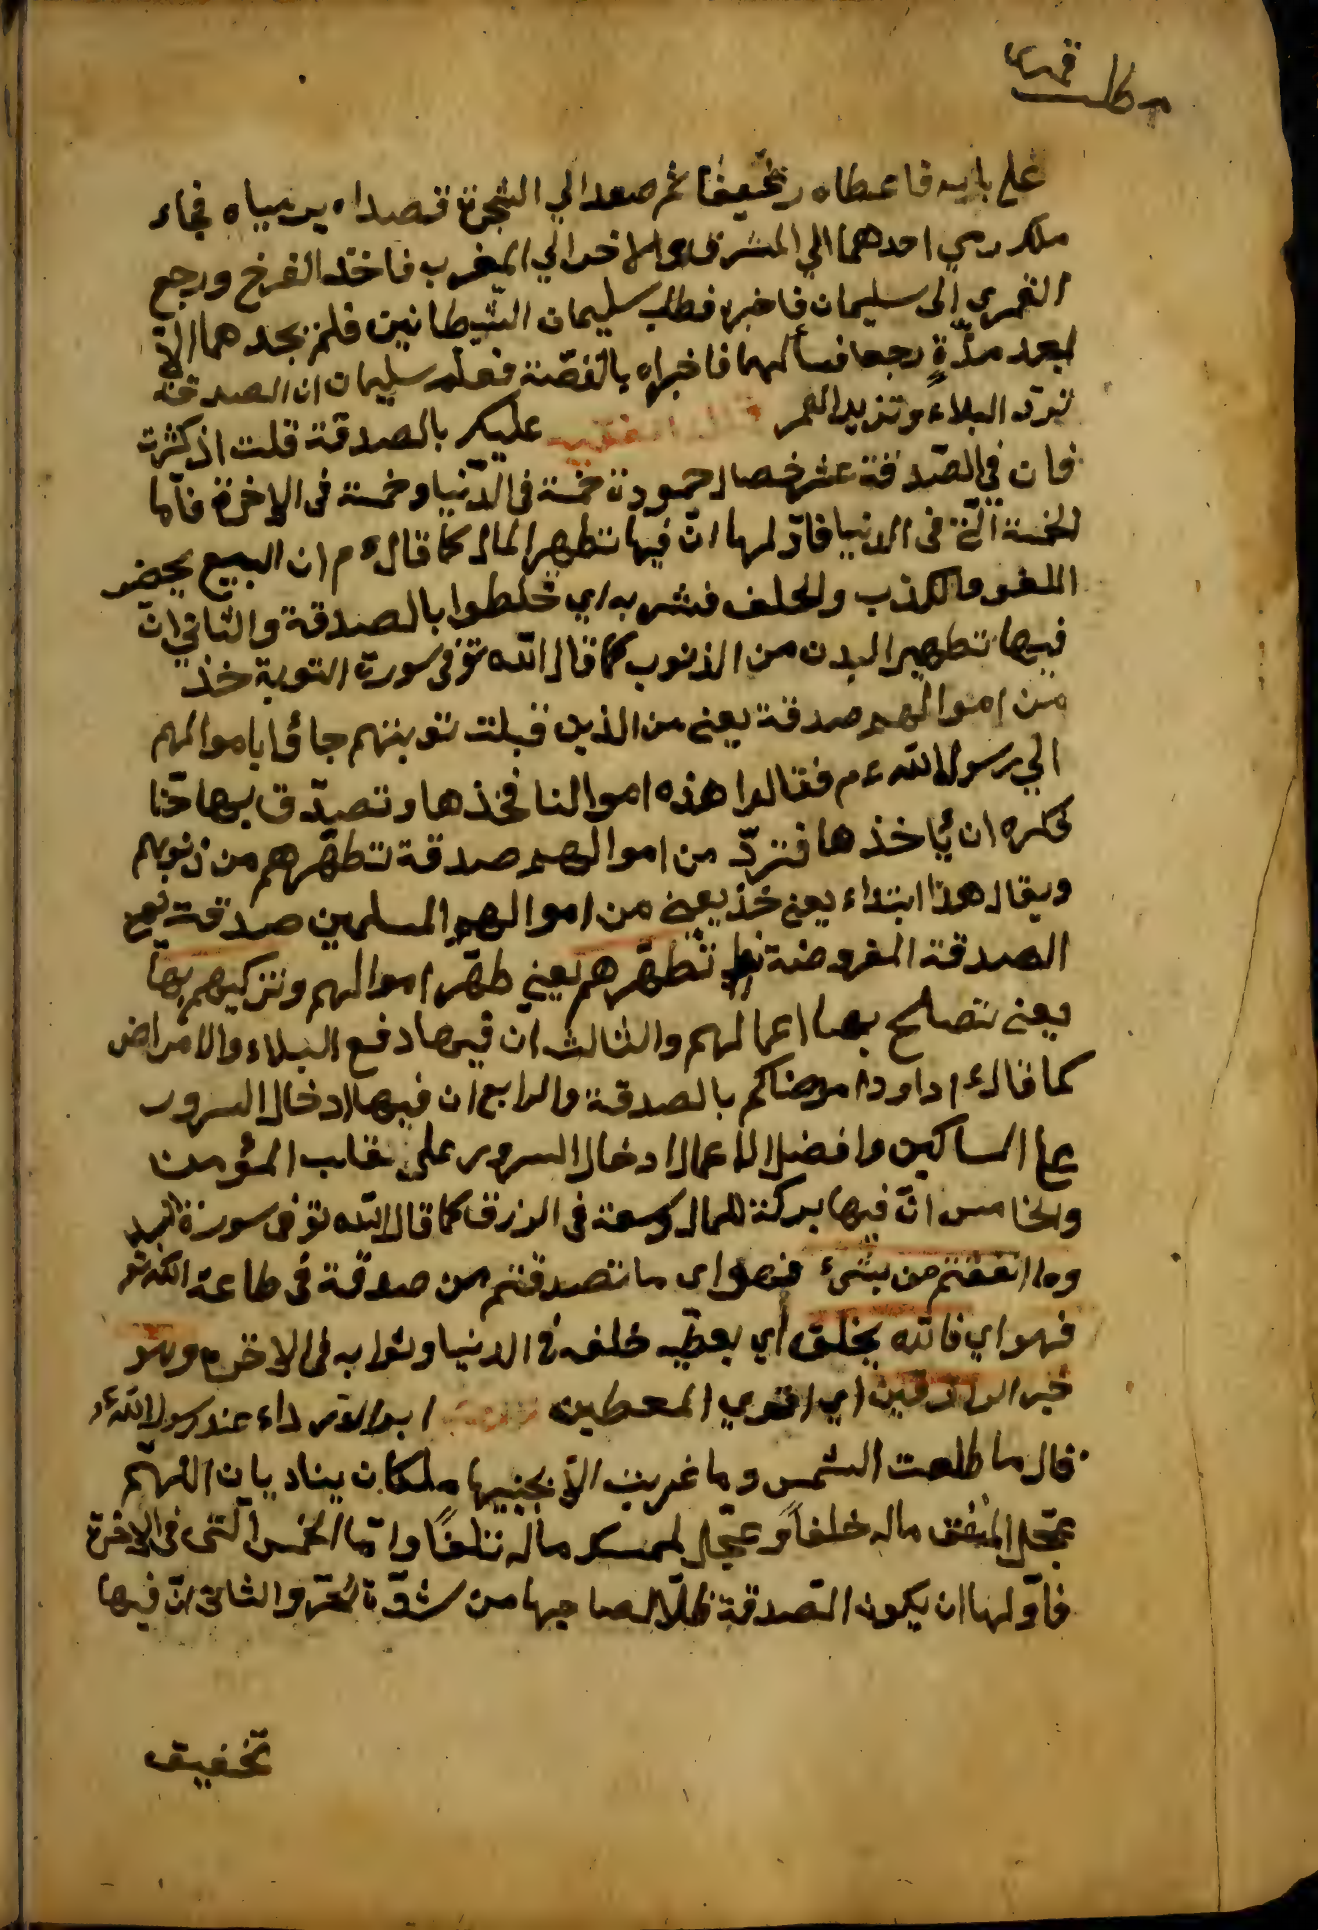 مطلب قمرى
على بابه فاعطاه رغيفا ثم صعد الي الشجرة قصداه يرمياه فجاء
ملك رمي احدهما الي المشرق والاخر الي المغرب فاخذ الفرخ ورجع
القمري الى سليمان فاخبره فطلب سليمان الشيطانين فلم يجدهما الا
بعد مدّةٍ رجعا فسألهما فاخبراه بالقصّة فعلم سليمان ان الصدقة
تردّ البلاء وتزيد العمر قال الفقيه عليكم بالصدقة قلت اذ كثرت
فان في الصّدقة عشر خصال حمودة خمسة في الدّنيا وخمسة فى الاخرة فامّا
الخمسة الّتي فى الدنيا فاوّلها انّ فيها تطهير المال كما قال ءم ان البيع يحضر
اللغو والكذب والحلف فشربه اي خلطوا بالصدقة والثاني انّ
فيها تطهير البدن من الذنوب كما قال الله تع فى سورة التوبة خذ
من اموالهم صدقة يعنى من الذين قبلت توبتهم جاؤا باموالهم
الي رسول الله ءم فقالوا هذه اموالنا فخذها وتصدّق بها عنّا
فكره ان يأخذها فنزل من اموالهم صدقة تطهّرهم من ذنوبهم
ويقال هذا ابتداء يعنى خذ يعنى من اموالهم المسلمين صدقة يعنى
الصدقة المفروضة تطهّرهم يعني طهّر اموالهم وتزكيهم بها
يعنى تصلح بها اعمالهم والثالث ان فيها دفع البلاء والامراض
كما قال ءم داووا مرضاكم بالصدقة والرابع ان فيها ادخال السرور
على المساكين وافضل الاعمال ادخال السرور على قلب المؤمن
والخامس انّ فيها بركة للمال وسعة فى الرزق كما قال الله تع فى سورة
وما انفقتم من شيء فهو اى ما تصدقتم من صدقة فى طاعة الله تع
فهو اي فالله يخلفه أي يعطيه خلفه في الدنيا وثوابه فى الاخرة وهو
خير الرازقين اي اقوي المعطين ابو الدرداء عند رسول الله ءم
قال ما طلعت الشمس وما غربت الاّ بجنبيها ملكان يناديان اللّهمّ
عجّل المنفق ماله خلفاً وعجّل لممسك ماله تلفاً وامّا الخمس الّتى فى الاخرة
فاوّلها ان يكون الصّدقة ظلّا لصاحبها من شدّة الحرّ والثانى انّ فيها
تخفيف